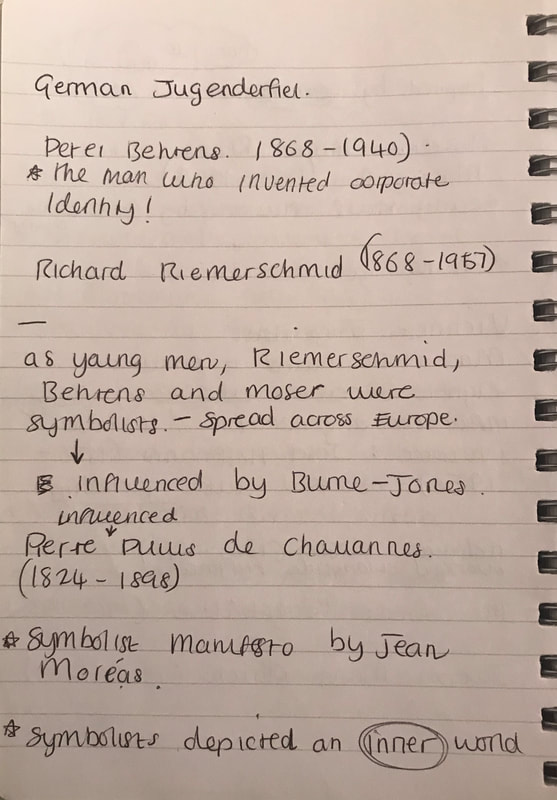 German Jugenderfiel.
Peter Behrens. 1868-1940).
* The man who invented corporate
Identity!
Richard Riemerschmid (1868-1957)
—
as young men, Riemerschmid,
Behrens and moser were
symbolists. - spread across Europe.
↓
influenced by Burne-Jones.
influenced
Pierre Puvis de Chavannes.
(1824-1898)
* Symbolist manifesto by Jean
Moréas.
* Symbolists depicted an inner world